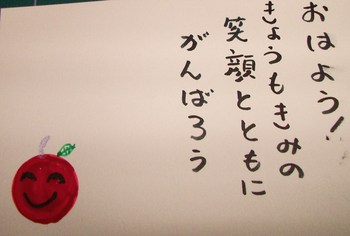 おはよう!
きょうもきみの
笑顔とともに
がんばろう